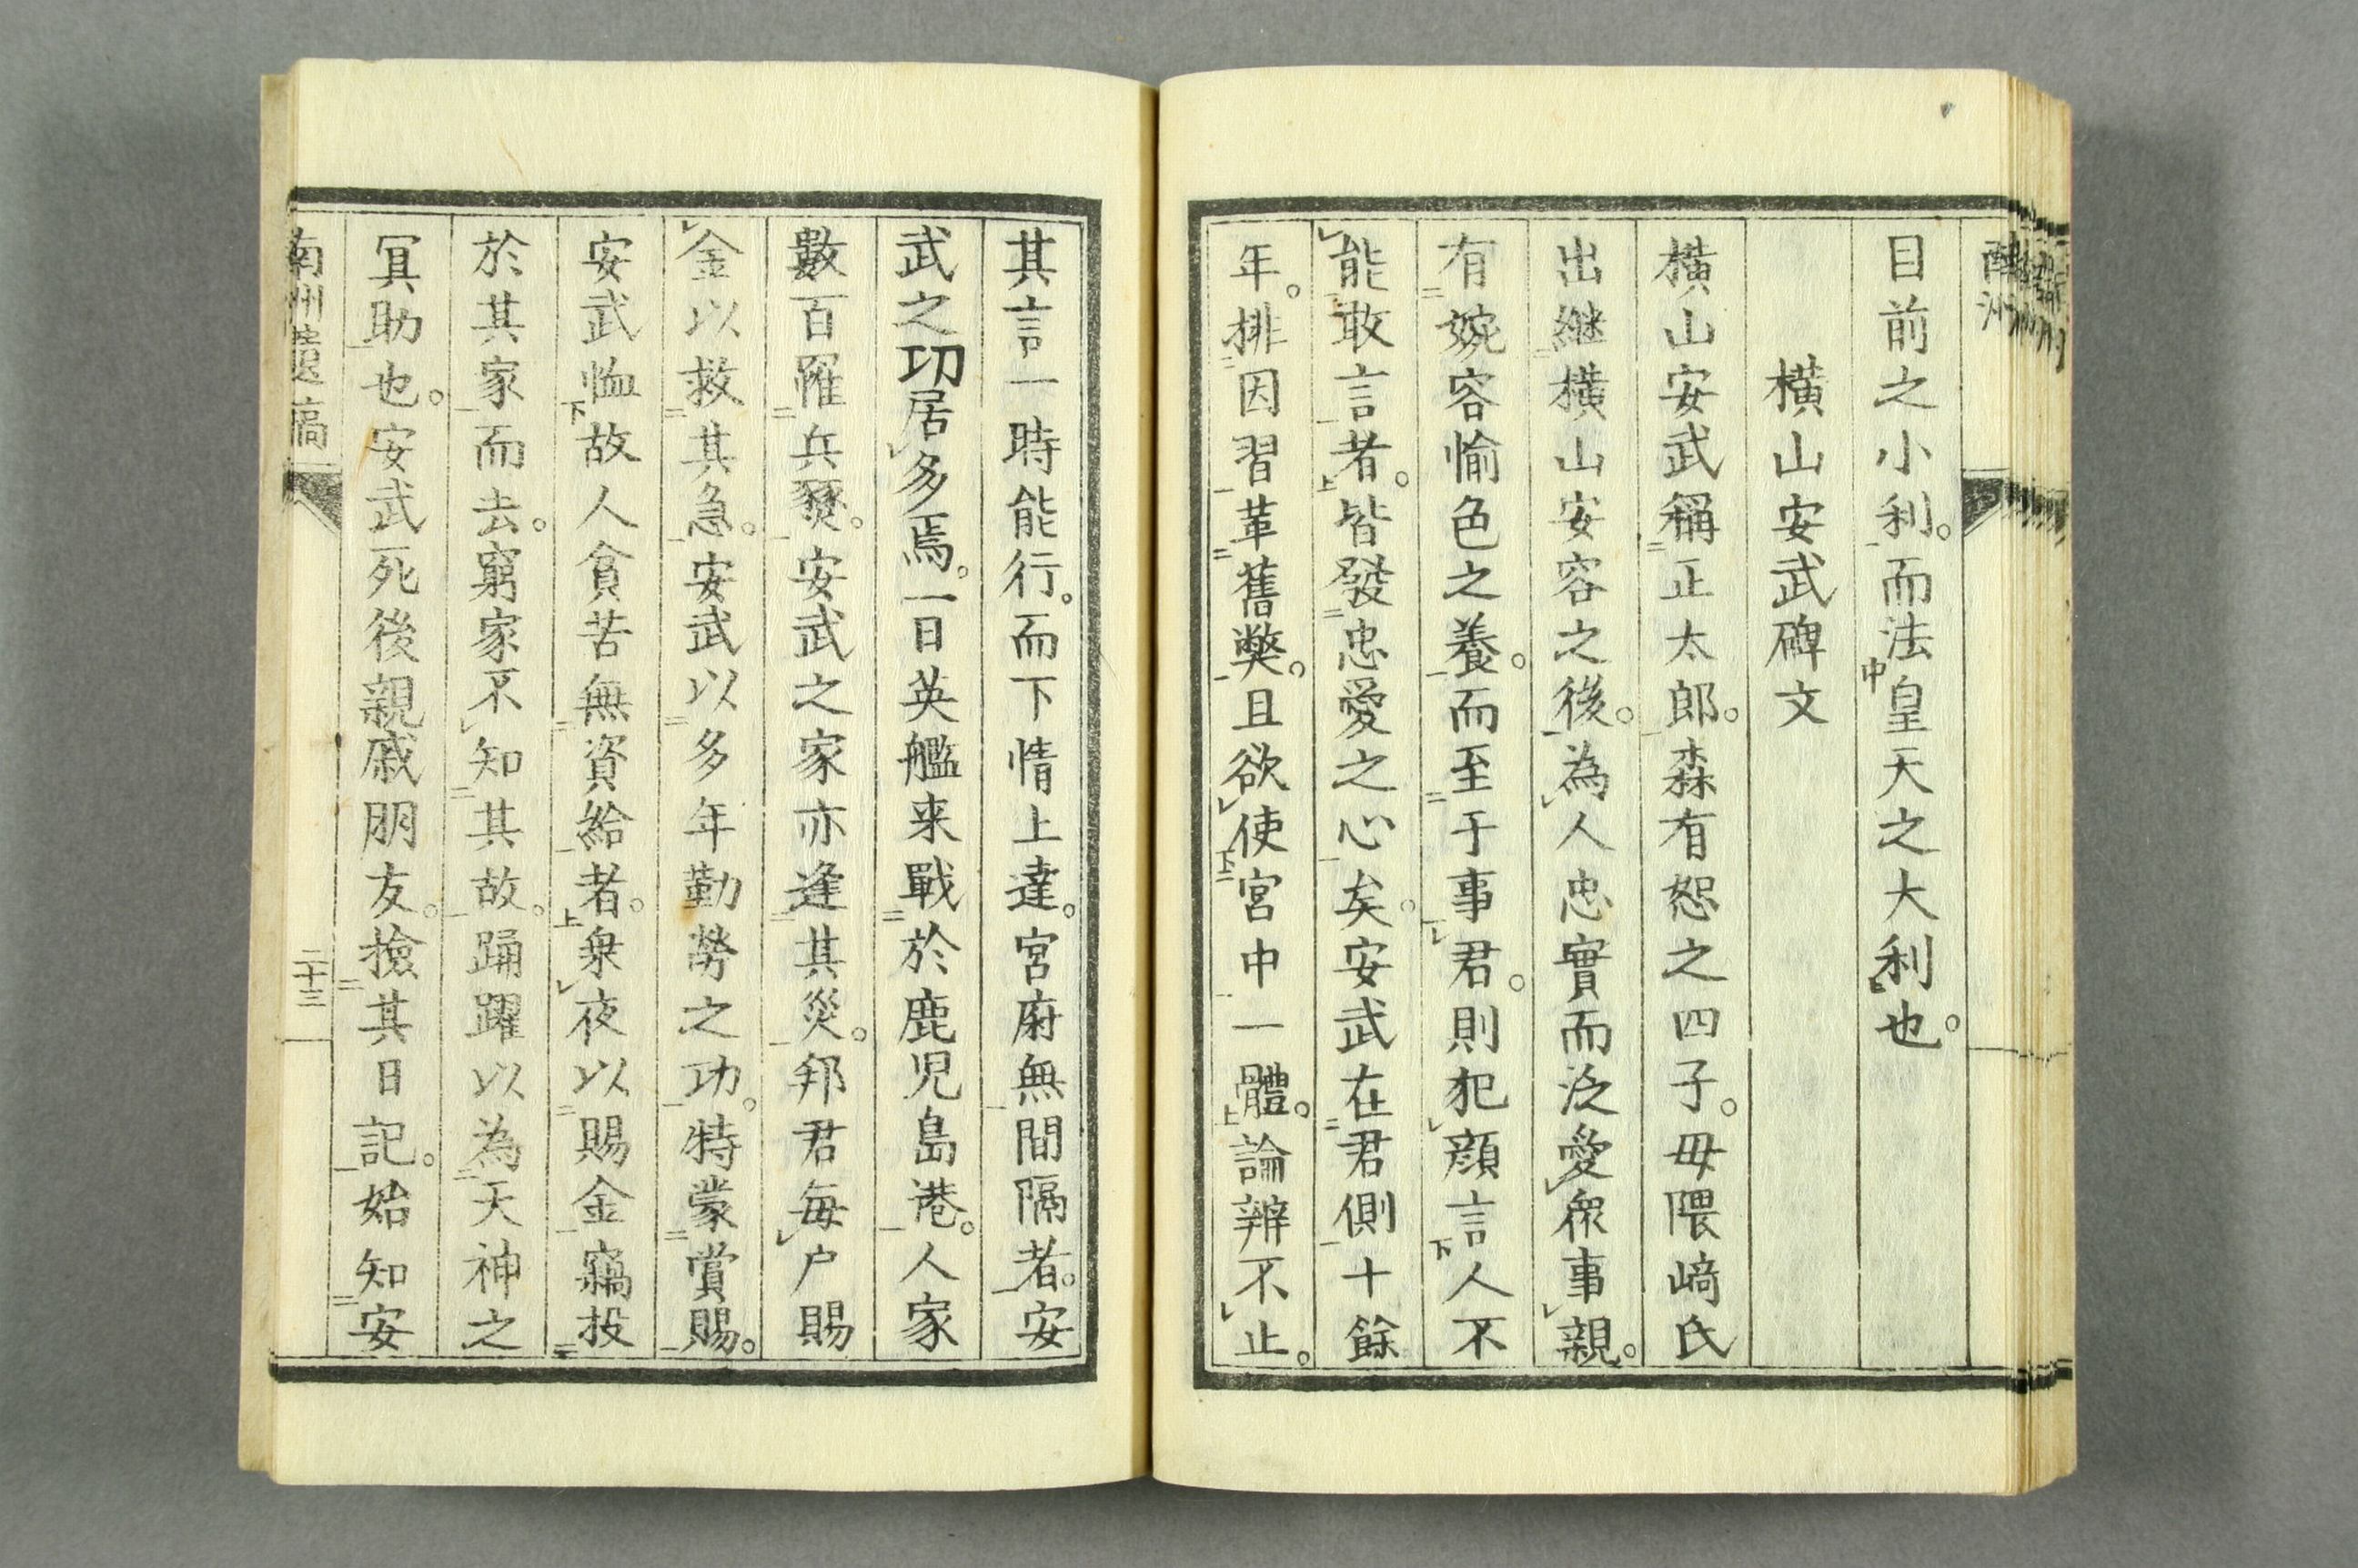 目前之小利。而法皇天之大利也。
横山安武碑文
横山安武稱正太郎。森有恕之四子。毋隈﨑氏
出継横山安容之後。為人忠實而泛愛衆事親。
有婉容愉色之養。而至于事君。則犯顔言人不
能敢言者。皆發忠愛之心矣。安武在君側十餘
年。排因習革舊弊。且欲使宮中一體。論辨不止。
其言一時能行。而下情上達。宮府無間隔者。安
武之功居多焉。一日英艦来戰於鹿児島港。人家
數百罹兵燹。安武之家亦逢其災。邦君毎户賜
金以救其急。安武以多年勤勞之功。特蒙賞賜。
安武恤故人貧苦無資給者。衆夜以賜金竊投
於其家而去。窮家不知其故。踊躍以為天神之
冥助也。安武死後親戚朋友。撿其日記。始知安
南州遺稿
二十三